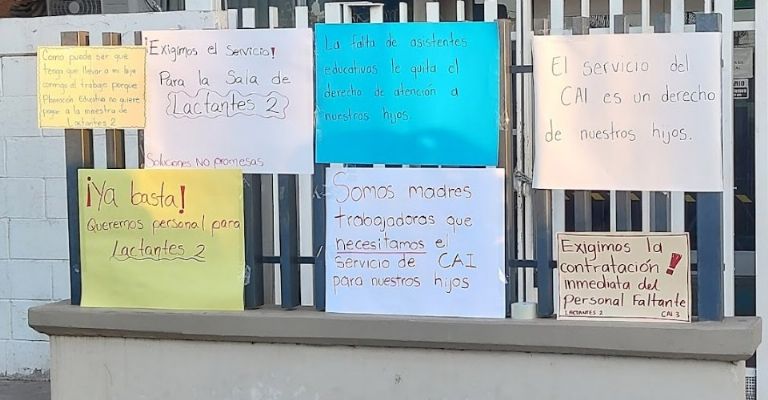 Como puede ser que
tenga que llevar a mi hijo
conmigo al trabajo porque
Promoción Educativa no quiere
pagar a la maestra de
Lactantes 2
¡Exigimos el Servicio!
Para la Sala de
Lactantes 2
Soluciones NO promesas
La falta de asistentes
educativas le quita el
derecho de atención a
nuestros hijos.
El servicio del
CAI es un derecho
de nuestros hijos.
¡Ya basta!
Queremos personal para
Lactantes 2
Somos madres
trabajadoras que
necesitamos el
Servicio de CAI
para nuestros hijos
Exigimos la
contratación
inmediata del
Personal Faltante!
LACTANTES 2 CAI 3